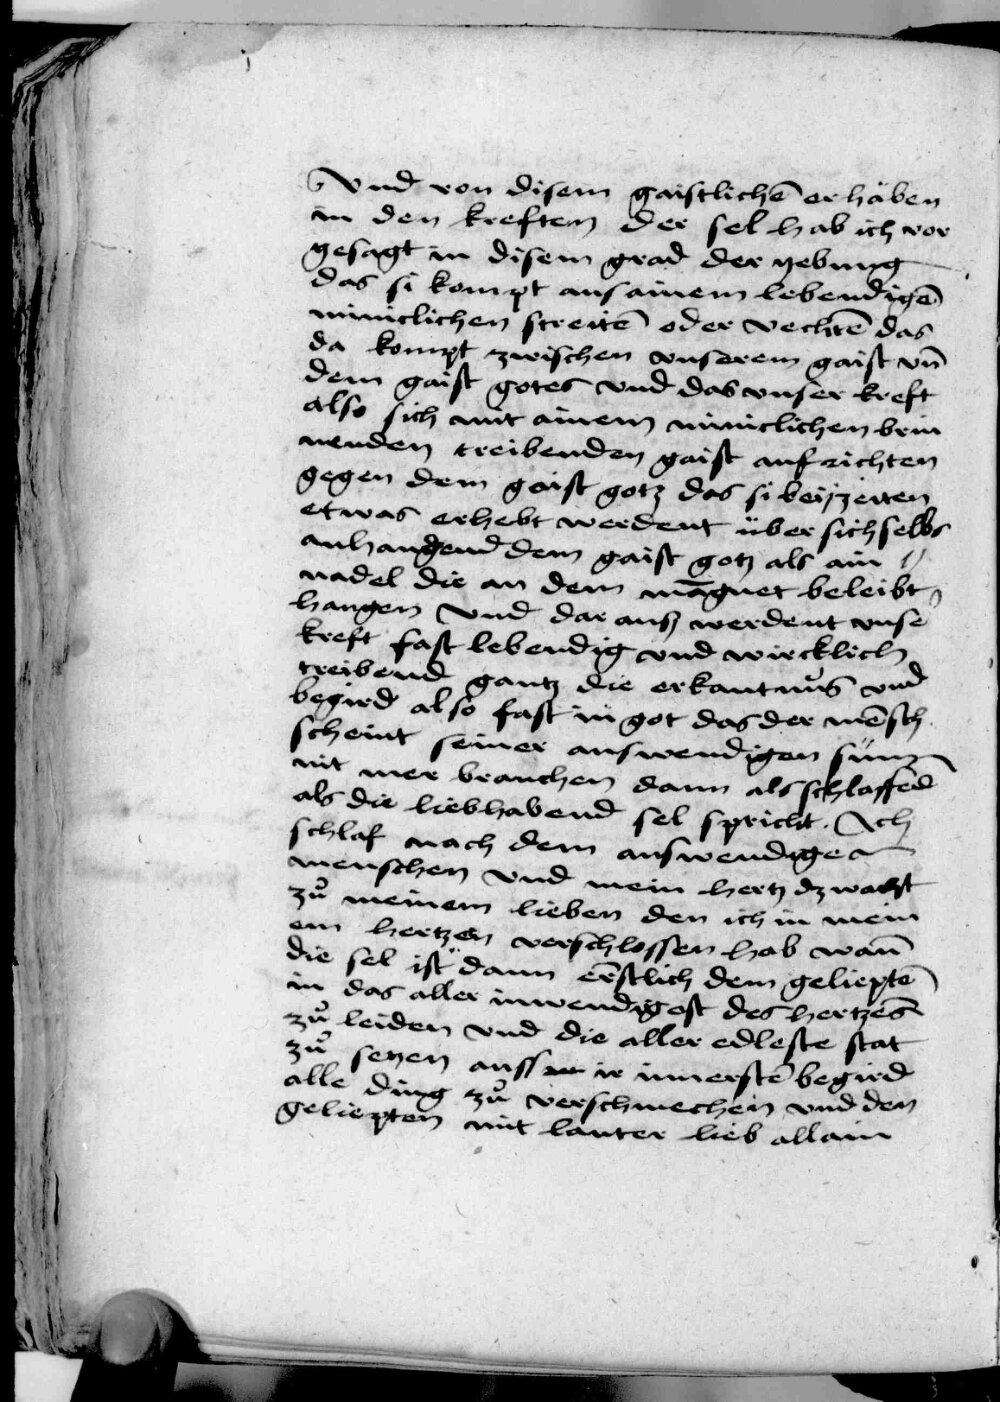 Vnd von disem gaistlichē erhäben
in den kreftem der sel hab ich vor
gesagt in disem grad der yebung
das si kompt aus ainem lebendigē
miniclichen streitē oder vechtē das
da kompt zwischen vnserem gaist vn̄
dem gaist gotes vnd das vnser kreft
also sich mit ainem miniclichen brin
nenden treibenden gaist auf richten
gegen dem gaist gotz das si beijzeiten
etwas erhebt werdent über sich selbs
anhangend dem gaist gotz als ain
nadel die an dem māgnet beleibt
hangen Vnd dar auß werdent vnse
kreft fast lebendig vnd wircklich
treibend gantz die erkantnus vnd
begird also fast in got das der mēsch
scheint seiner auswendigen sünn
nit mer brauchen dann als schlaffēd
als die liebhabend sel spricht. Ich
schlaf nach dem auswendigen
menschen vnd mein hertz dz wacht
zů meinem lieben den ich in mein
em hertzen verschlossen hab wan̄
die sel ist dann erstlich dem gelieptē
in das aller inwendigost des hertzens
zů leiden vnd die aller edleste stat
zů setzen auss ir innerstē begird
alle ding zů verschmechen vnd den
geliepten mit lauter lieb allain